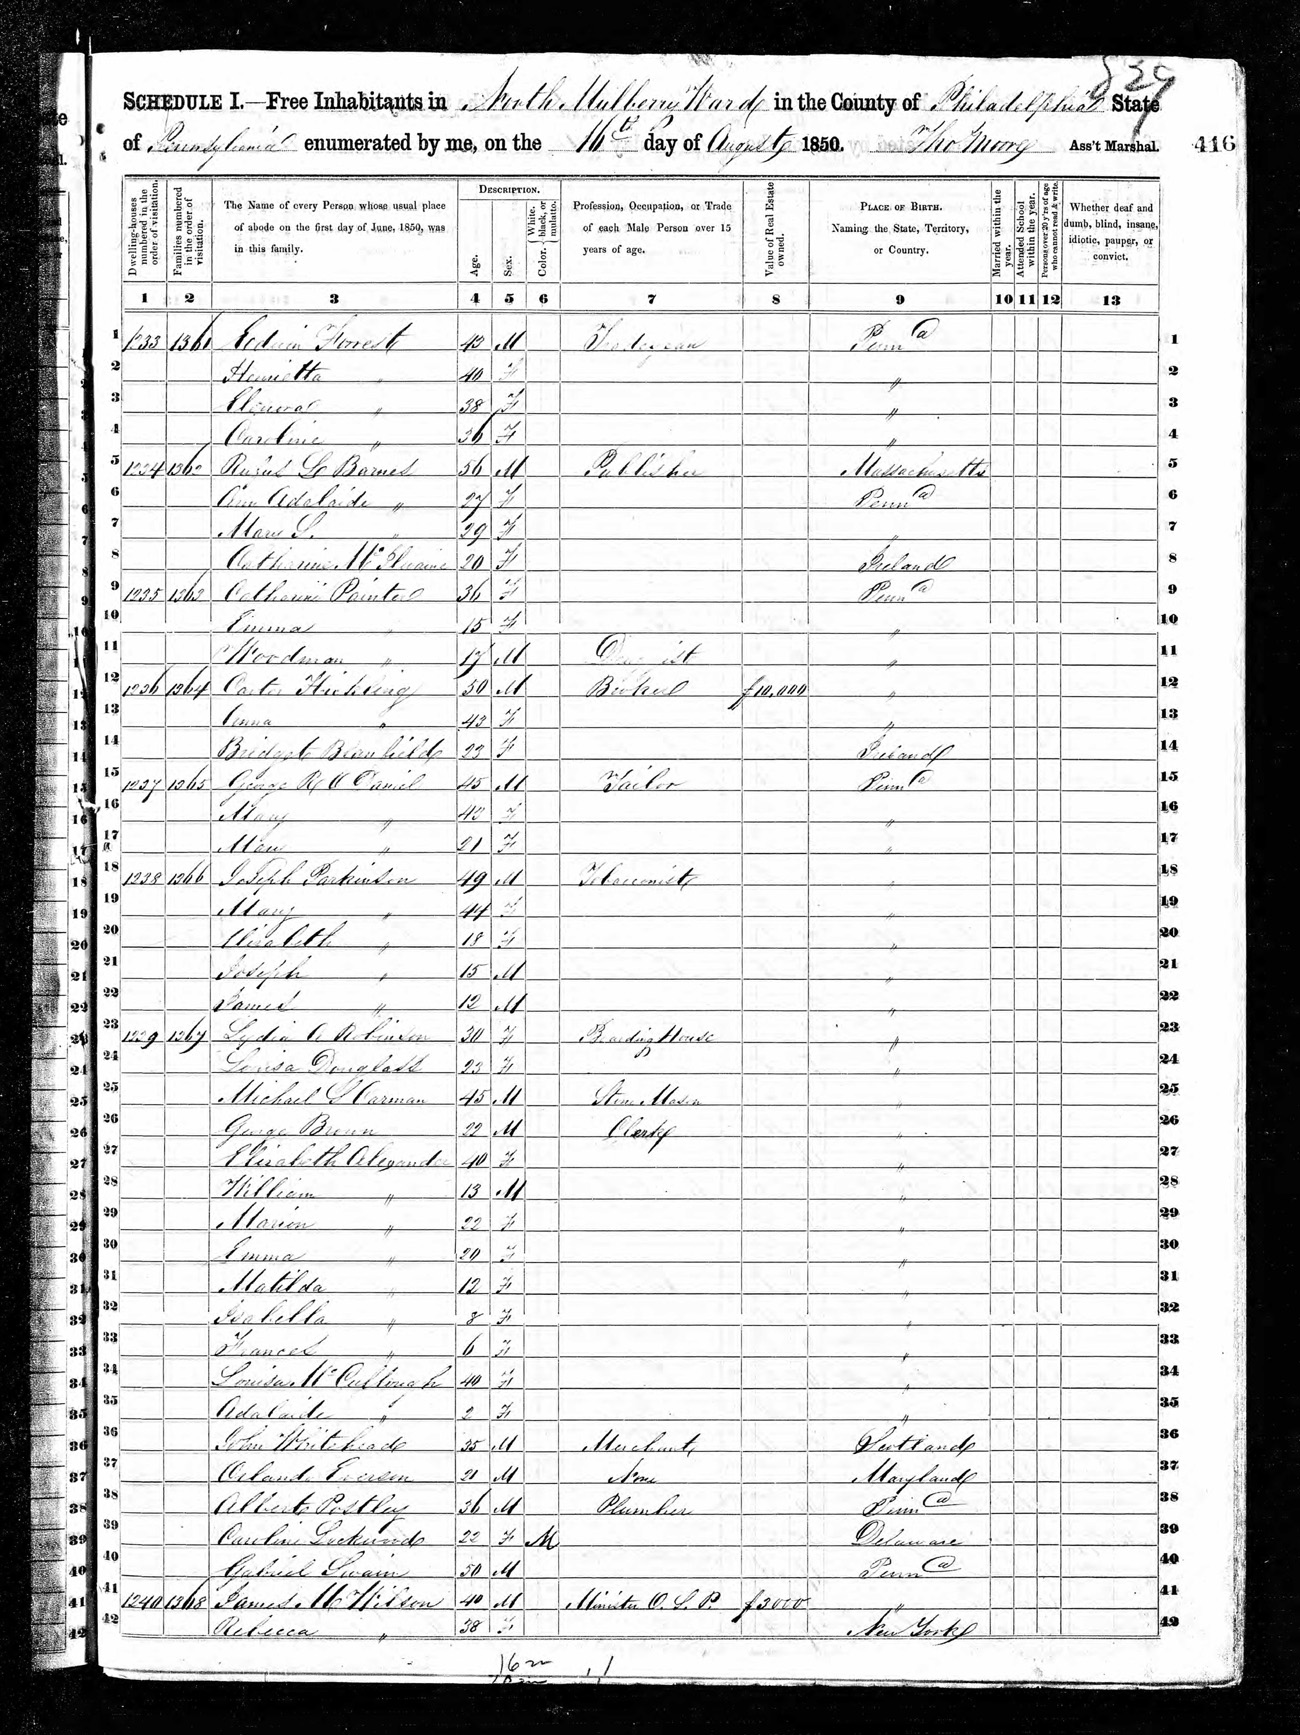 829
SCHEDULE I.—Free Inhabitants in North Mulberry Ward in the County of Philadelphia State
of Pennsylvania enumerated by me, on the 16th day of August 1850. Tho Moore Ass't Marshal. 416
Dwelling-houses numbered in the order of visitation. Families numbered in the order of visitation. The Name of every Person whose usual place of abode on the first day of June, 1850, was in this family. DESCRIPTION. Age. Sex. Color. White, black, or mulatto. Profession, Occupation, or Trade of each Male Person over 15 years of age. Value of Real Estate owned. PLACE OF BIRTH. Naming the State, Territory, or Country. Married within the year. Attended School within the year. Persons over 20 y'rs of age who cannot read & write. Whether deaf and dumb, blind, insane, idiotic, pauper, or convict.
1 2 3 4 5 6 7 8 9 10 11 12 13
1 1233 1361 Edwin Forrest 43 M Tradgean Penna 1
2 Henrietta " 40 F " 2
3 Elenora " 38 F " 3
4 Caroline " 36 F " 4
5 1234 1362 Rufus L Barnes 56 M Publisher Massachusetts 5
6 Ann Adelaide " 27 F Penna 6
7 Mary S. " 29 F " 7
8 Catharine 20 F Ireland 8
9 1235 1363 Catharine Painter 36 F Penna 9
10 Emma " 15 F " 10
11 Woodman " 17 M Druggist " 11
12 1236 1364 Carter Hickling 50 M Broker $10,000 " 12
13 Anna " 43 F " 13
14 Bridget 23 F Ireland 14
15 1237 1365 George R O Daniel 45 M Tailor Penna 15
16 Mary " 43 F " 16
17 Mary " 21 F " 17
18 1238 1366 Joseph Parkinson 49 M Tobacconist " 18
19 Mary " 44 F " 19
20 Elizabeth " 18 F " 20
21 Joseph " 15 M " 21
22 James " 12 M " 22
23 1239 1367 Lydia A Robinson 30 F Boarding House " 23
24 Louisa Douglass 23 F " 24
25 Michael S Carman 45 M Stone Mason " 25
26 George Brown 22 M Clerk " 26
27 Elizabeth Alexander 40 F " 27
28 William " 13 M " 28
29 Marion " 22 F " 29
30 Emma " 20 F " 30
31 Matilda " 12 F " 31
32 Isabella " 8 F " 32
33 Frances " 6 F " 33
34 Louisa McCullough 40 F " 34
35 Adalaide " 2 F " 35
36 John Whitehead 35 M Merchant Scotland 36
37 Orlando Everson 21 M None Maryland 37
38 Albert Postley 36 M Plumber Penna 38
39 Caroline Lockwood 22 F M Delaware 39
40 Gabriel Swain 50 M Penna 40
41 1240 1368 James M Wilson 40 M Minister O. S. P. $3000 " 41
42 Rebecca " 38 F New York 42
16 m